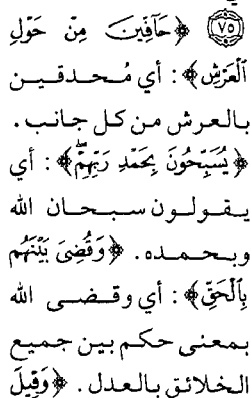 ٧٥ ﴿حَآفِّينَ مِنْ حَوْلِ
ٱلْعَرْشِ﴾ : أي مُـحـدقـيـن
بـالـعـرش مـن كـل جـانـب .
﴿يُسَبِّحُونَ بِحَمْدِ رَبِّهِمْ ۖ﴾ : أي
يـقـولـون سـبـحـان الله
وبـحـمـده. ﴿وَقُضِىَ بَيْنَهُم
بِٱلْحَقِّ﴾ : أي وقـضـى الله
بـمعنى حكم بـيـن جـمـيـع
الـخلائق بـالـعدل . ﴿وَقِيلَ